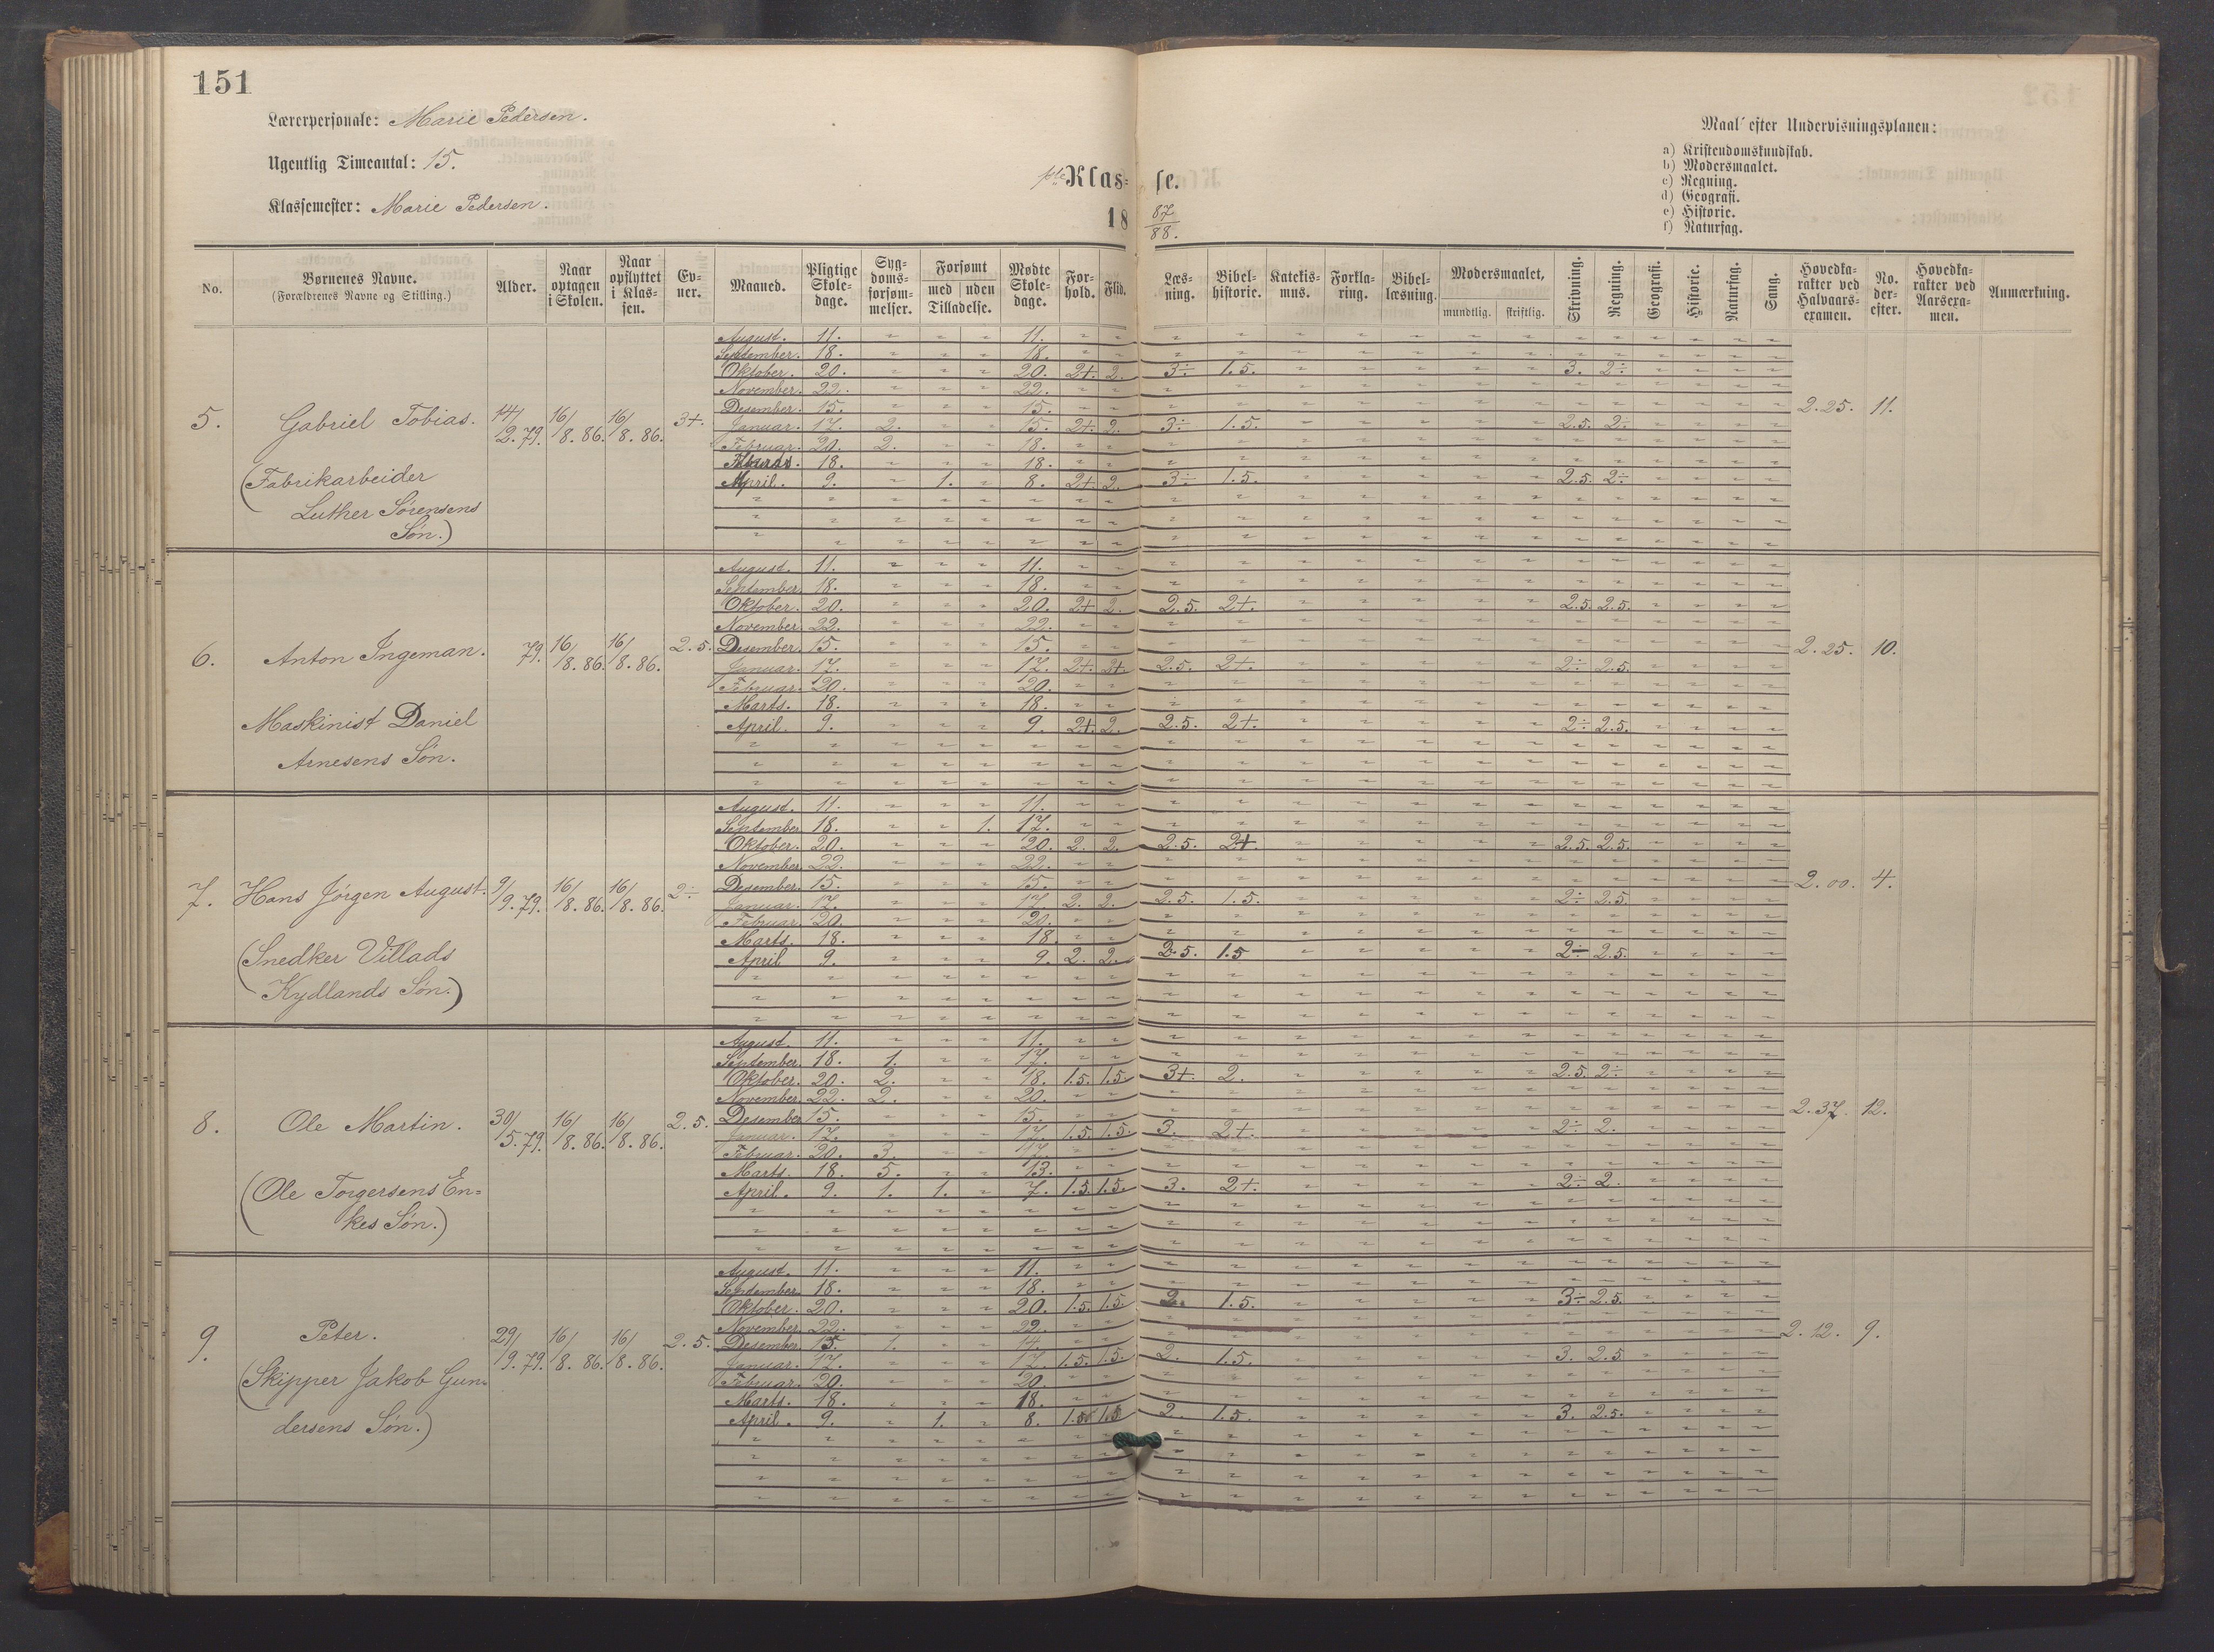 151
Lærerpersonale: Marie Pedersen.
Ugentlig Timeantal: 15.
Klassemester: Marie Pedersen.
1ste Klas= se.
18 87/88.
Maal efter Undervisningsplanen:
a) Kristendomskundskab.
b) Modersmaalet.
c) Regning.
d) Geografi.
e) Historie.
f) Naturfag.
No. Børnenes Navne. (Forældrenes Navne og Stilling.) Alder. Naar optagen i Skolen. Naar opflyttet i Klas-sen. Ev-ner. Maaned. Pligtige Skole-dage. Syg-doms-forsøm-melser. Forsømt med uden Tilladelse. Mødte Skole-dage. For-hold. Flid. Læs-ning. Bibel-historie. Katekis-mus. Forkla-ring. Bibel-læsning. Modersmaalet, mundtlig. skriftlig. Skrivning. Regning. Geografi. Historie. Naturfag. Sang. Hovedka-rakter ved Halvaars-examen. No. der-efter. Hovedka-rakter ved Aarsexa-men. Anmærkning.
5. Gabriel Tobias. 14/2.79. 16/8.86. 16/8.86. 3+. 2.25. 11.
(Fabrikarbeider
Luther Sørensens
Søn.)
August. 11. 11.
September. 18. 18.
Oktober. 20. 20. 2+. 2. 3÷ 1.5. 3. 2÷
November. 22. 22.
Desember. 15. 15.
Januar. 17. 2. 15. 2+. 2. 3÷ 1.5. 2.5. 2÷
Februar. 20. 2. 18.
Marts. 18. 18.
April. 9. 1. 8. 2+. 2. 3÷ 1.5. 2.5. 2÷
6. Anton Ingeman. 79. 16/8.86. 16/8.86. 2.5. 2.25. 10.
Maskinist Daniel
Arnesens Søn.
August. 11. 11.
September. 18. 18.
Oktober. 20. 20. 2+ 2. 2.5. 2+. 2.5. 2.5.
November. 22. 22.
Desember. 15. 15.
Januar. 17. 17. 2+. 2+. 2.5. 2+. 2÷ 2.5.
Februar. 20. 20.
Marts. 18. 18.
April. 9. 9. 2+. 2. 2.5. 2+. 2÷ 2.5.
7. Hans Jörgen August. 9/9.79. 16/8.86. 16/8.86. 2÷ 2.00. 4.
(Snedker Villads
Kydlands Søn.)
August. 11. 11.
September. 18. 1. 17.
Oktober. 20. 20. 2. 2. 2.5. 2+. 2.5. 2.5.
November. 22. 22.
Desember. 15. 15.
Januar. 17. 17. 2. 2. 2.5. 1.5. 2÷ 2.5.
Februar. 20. 20.
Marts. 18. 18.
April 9. 9. 2. 2. 2.5. 1.5 2÷ 2.5.
8. Ole Martin. 30/5.79. 16/8.86. 16/8.86. 2.5. 2.37. 12.
(Ole Torgersens En=
kes Søn.)
August. 11. 11.
September. 18. 1. 17.
Oktober. 20. 2. 18. 1.5. 1.5. 3+. 2. 2.5. 2÷
November. 22. 2. 20.
Desember 15. 15.
Januar. 17. 17. 1.5. 1.5. 3. 2+. 2÷ 2.
Februar. 20. 3. 17.
Marts. 18. 5. 13.
April. 9. 1. 1. 7. 1.5. 1.5. 3. 2+. 2÷ 2.
9. Peter. 29/9.79. 16/8.86. 16/8.86. 2.5. 2.12. 9.
(Skipper Jakob Gun=
dersens Søn.)
August. 11. 11.
September. 18. 18.
Oktober. 20. 20. 1.5. 1.5. 2. 1.5. 3÷ 2.5.
November. 22. 22.
Desember. 15. 1. 14.
Januar. 17. 17. 1.5. 1.5. 2. 1.5. 3. 2.5
Februar. 20. 20.
Marts. 18. 18.
April. 9. 1. 8. 1.5. 1.5 2. 1.5. 3. 2.5.